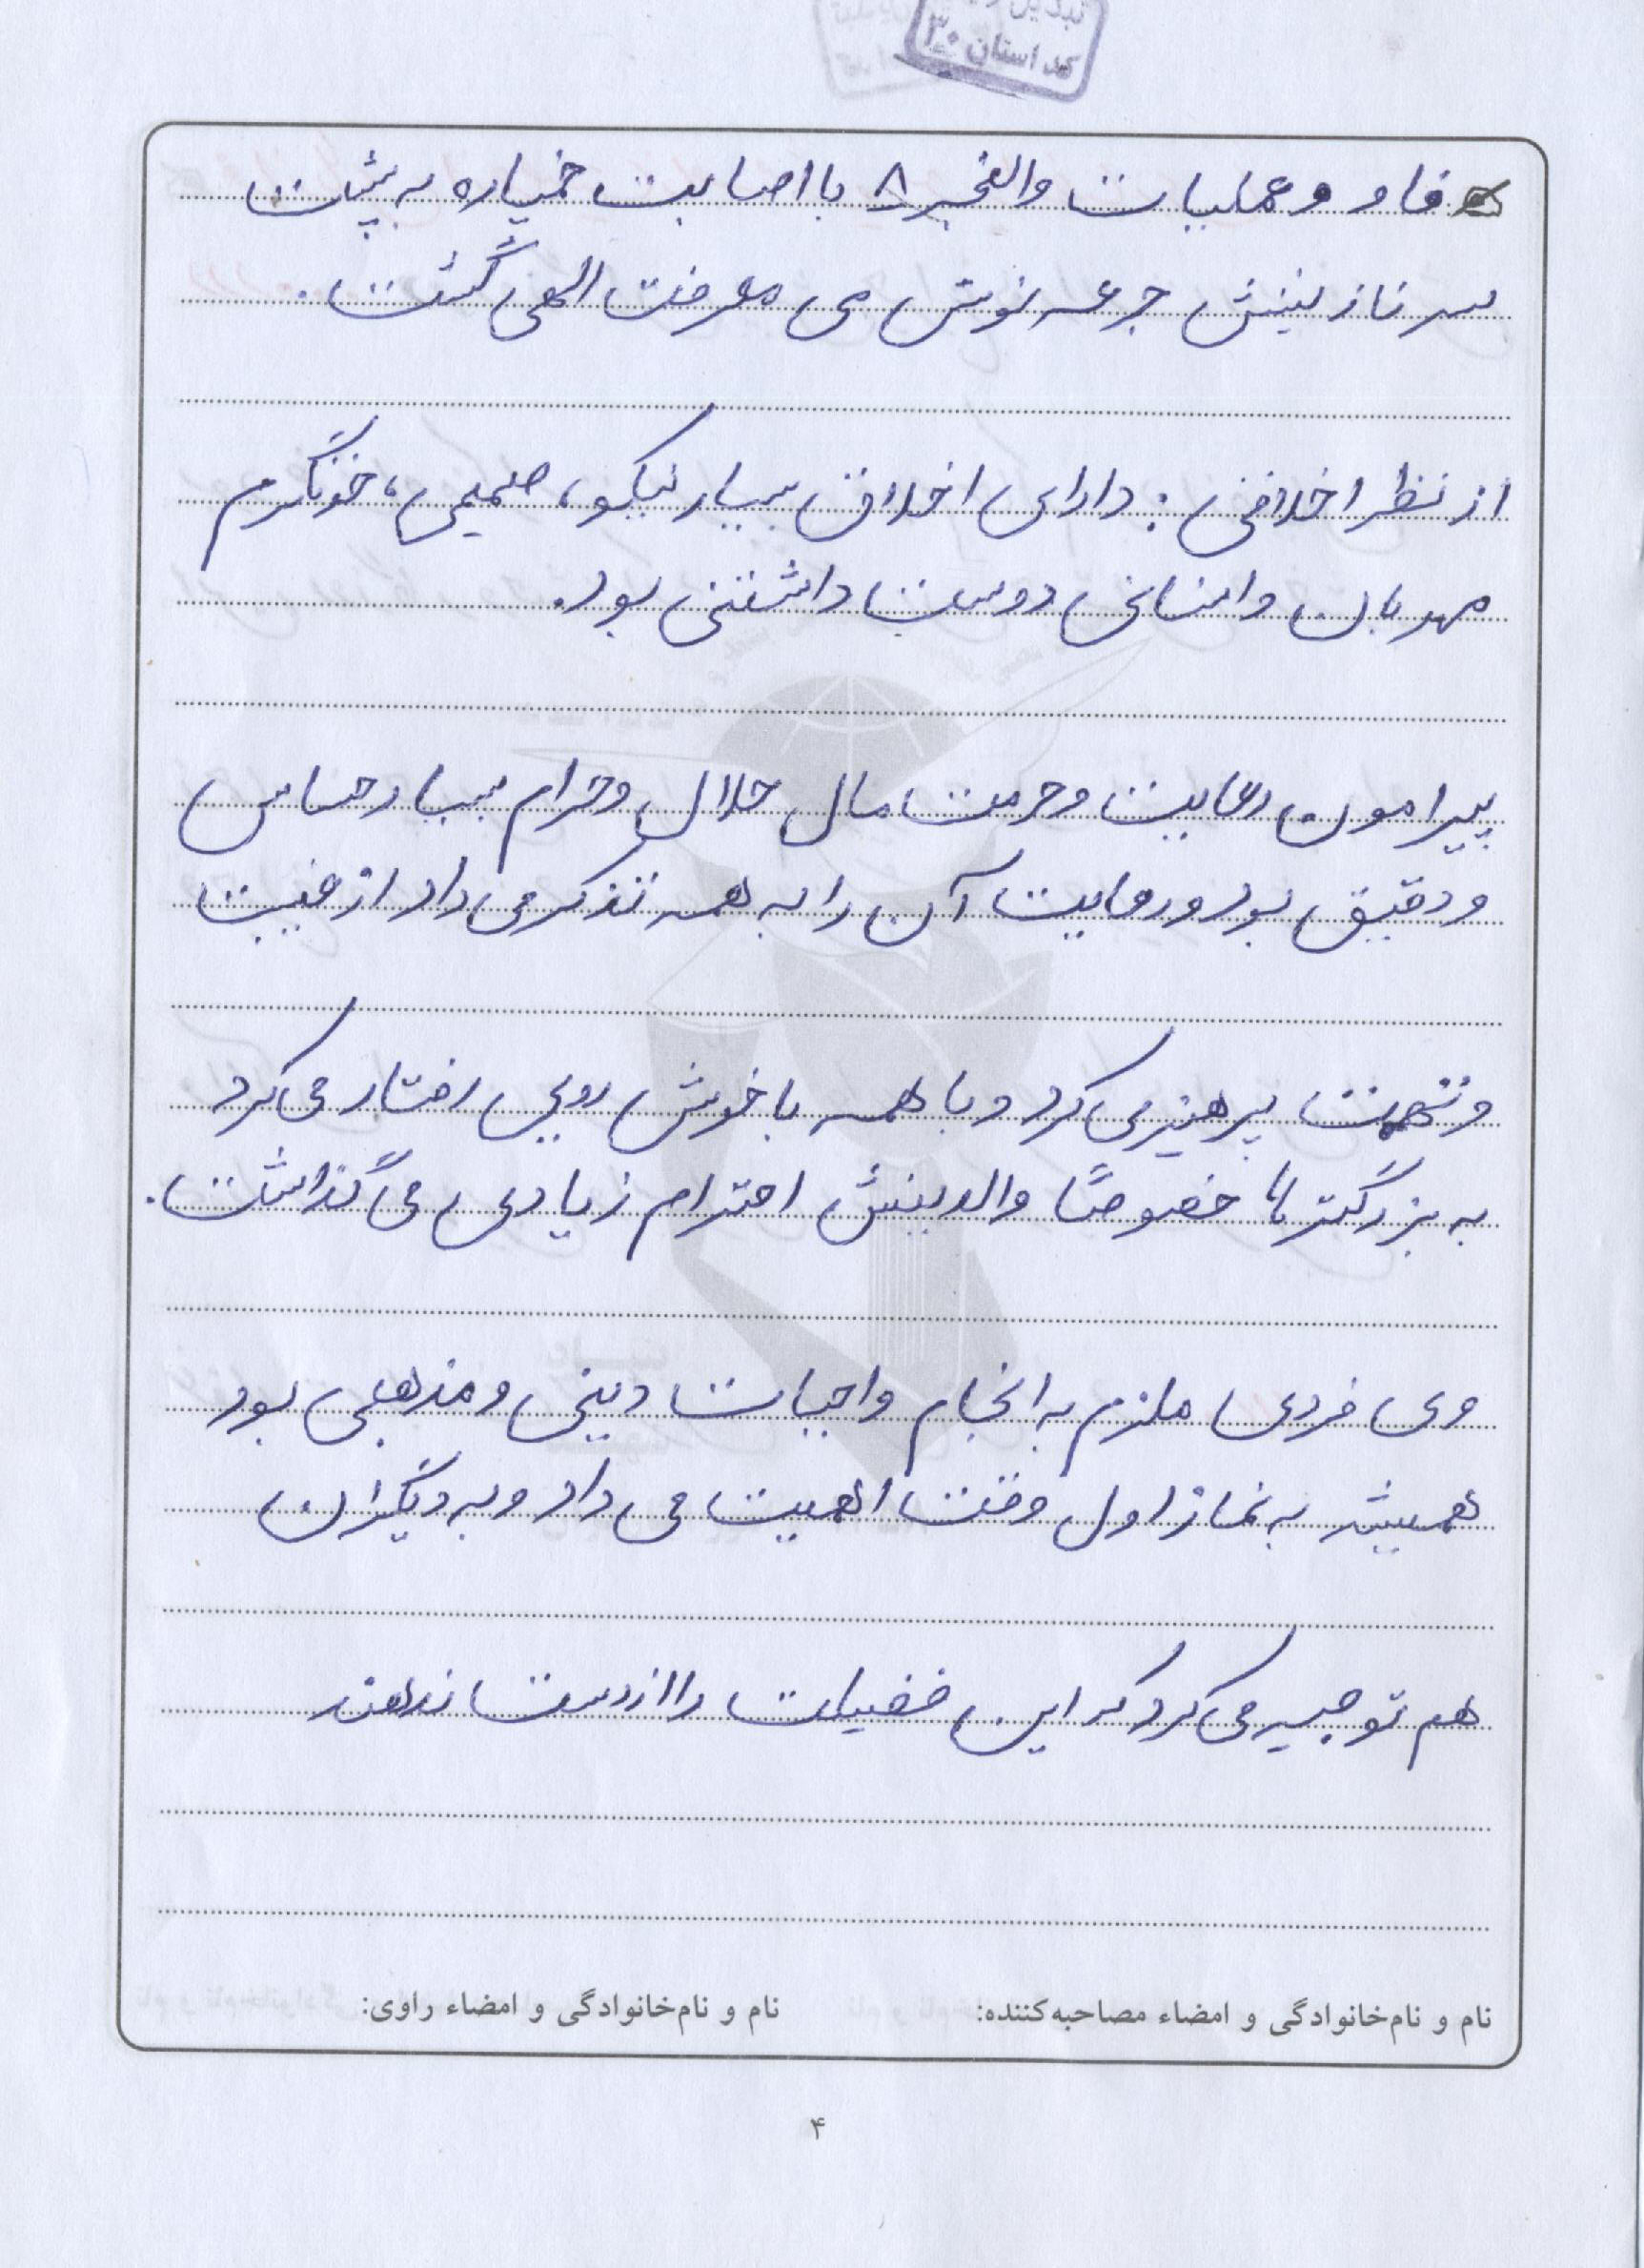 کد استان ۳۰
فاو و عملیات والفجر ۸ با اصابت خمپاره به پشت
سر نازنینش جرعه نوش می معرفت الهی گشت.
از نظر اخلاقی: دارای اخلاق بسیار نیکو، صمیمی، خونگرم
مهربان و انسانی دوست داشتنی بود.
پیرامون رعایت و حرمت مال حلال و حرام بسیار حساس
و دقیق بود و رعایت آن را به همه تذکر می داد از غیبت
و تهمت پرهیز می کرد و با همه با خوش رویی رفتار می کرد
به بزرگترها خصوصاً والدینش احترام زیادی می گذاشت.
وی فردی ملزم به انجام واجبات دینی و مذهبی بود
همیشه به نماز اول وقت اهمیت می داد و به دیگران
هم توصیه می کرد که این فضیلت را از دست ندهند
نام و نام‌خانوادگی و امضاء مصاحبه‌کننده: نام و نام‌خانوادگی و امضاء راوی:
۴